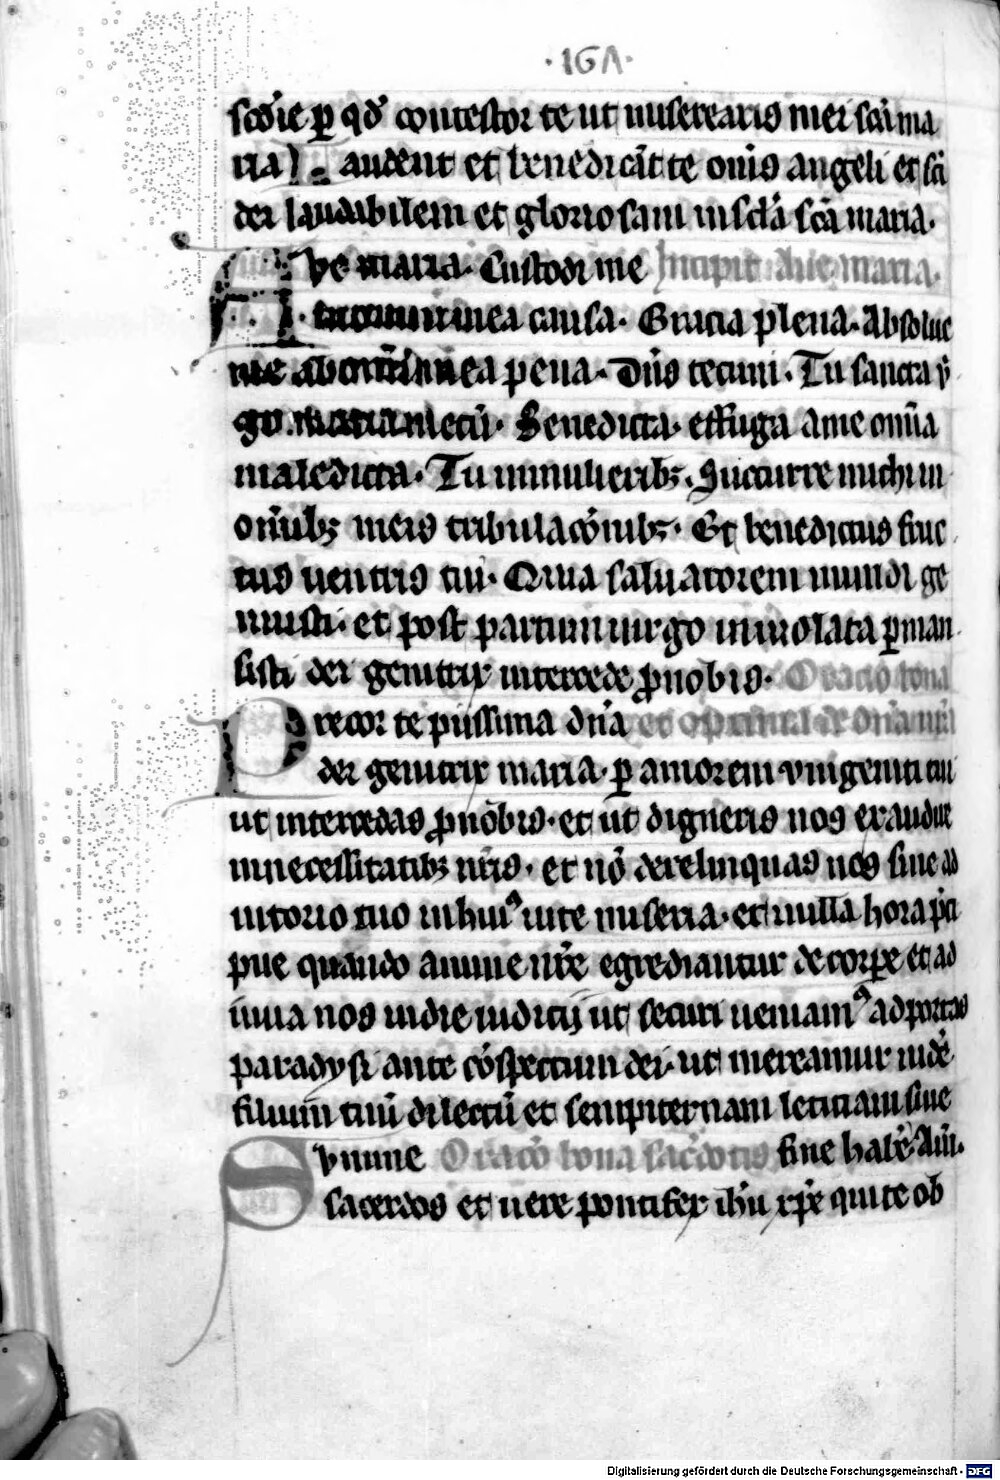 ·167·
scd̄ie ꝑ qd̄ contestor te ut miserearis mei sc̄a ma
ria laudent et benedicāt te om̄s angeli et sc̄i
dei laudabilem et gloriosam in sc̄la sc̄a maria.
Ave maria. Custodi me Incipit maria.
in omni mea causa. Gracia plena. Absolue
me ab omni mea pena. Dn̄s tecum. Tu sancta v̄
go maria mecū. Benedicta. effuga a me omīa
maledicta. Tu in mulieribꝫ. Succurre michi in
om̄ibꝫ meis tribulacōnibꝫ. Et benedictus fruc
tus uentris tui. Quia saluatorem mundi ge
nuisti. et post partum uirgo inuiolata ꝑman
sisti dei genitrix intercede ꝓ nobis. Oracio bona
Precor te piissima dn̄a et optima de dn̄a nr̄a
dei genitrix maria. ꝑ amorem vnigeniti tui
ut intercedas ꝓ nōbis. et ut digneris nos exaudire
in necessitatibꝫ nr̄is. et nō derelinquas nos sine ad
iutorio tuo in huiꝰ uite miseria. et in illa hora p̄ci
pue quando anime nr̄e egrediantur de corꝑe et ad
iuua nos in die iudicij ut securi ueniamꝰ ad portas
paradysi ante cōspectum dei. ut mereamur uidē
filium tuū dilectū et sempiternam leticiam sine
Svmme Oracō bona sac̄dotis fine habē. Am̄.
sacerdos et uere pontifex ih̄u xp̄e qui te ob
Digitalisierung gefördert durch die Deutsche Forschungsgemeinschaft - DFG